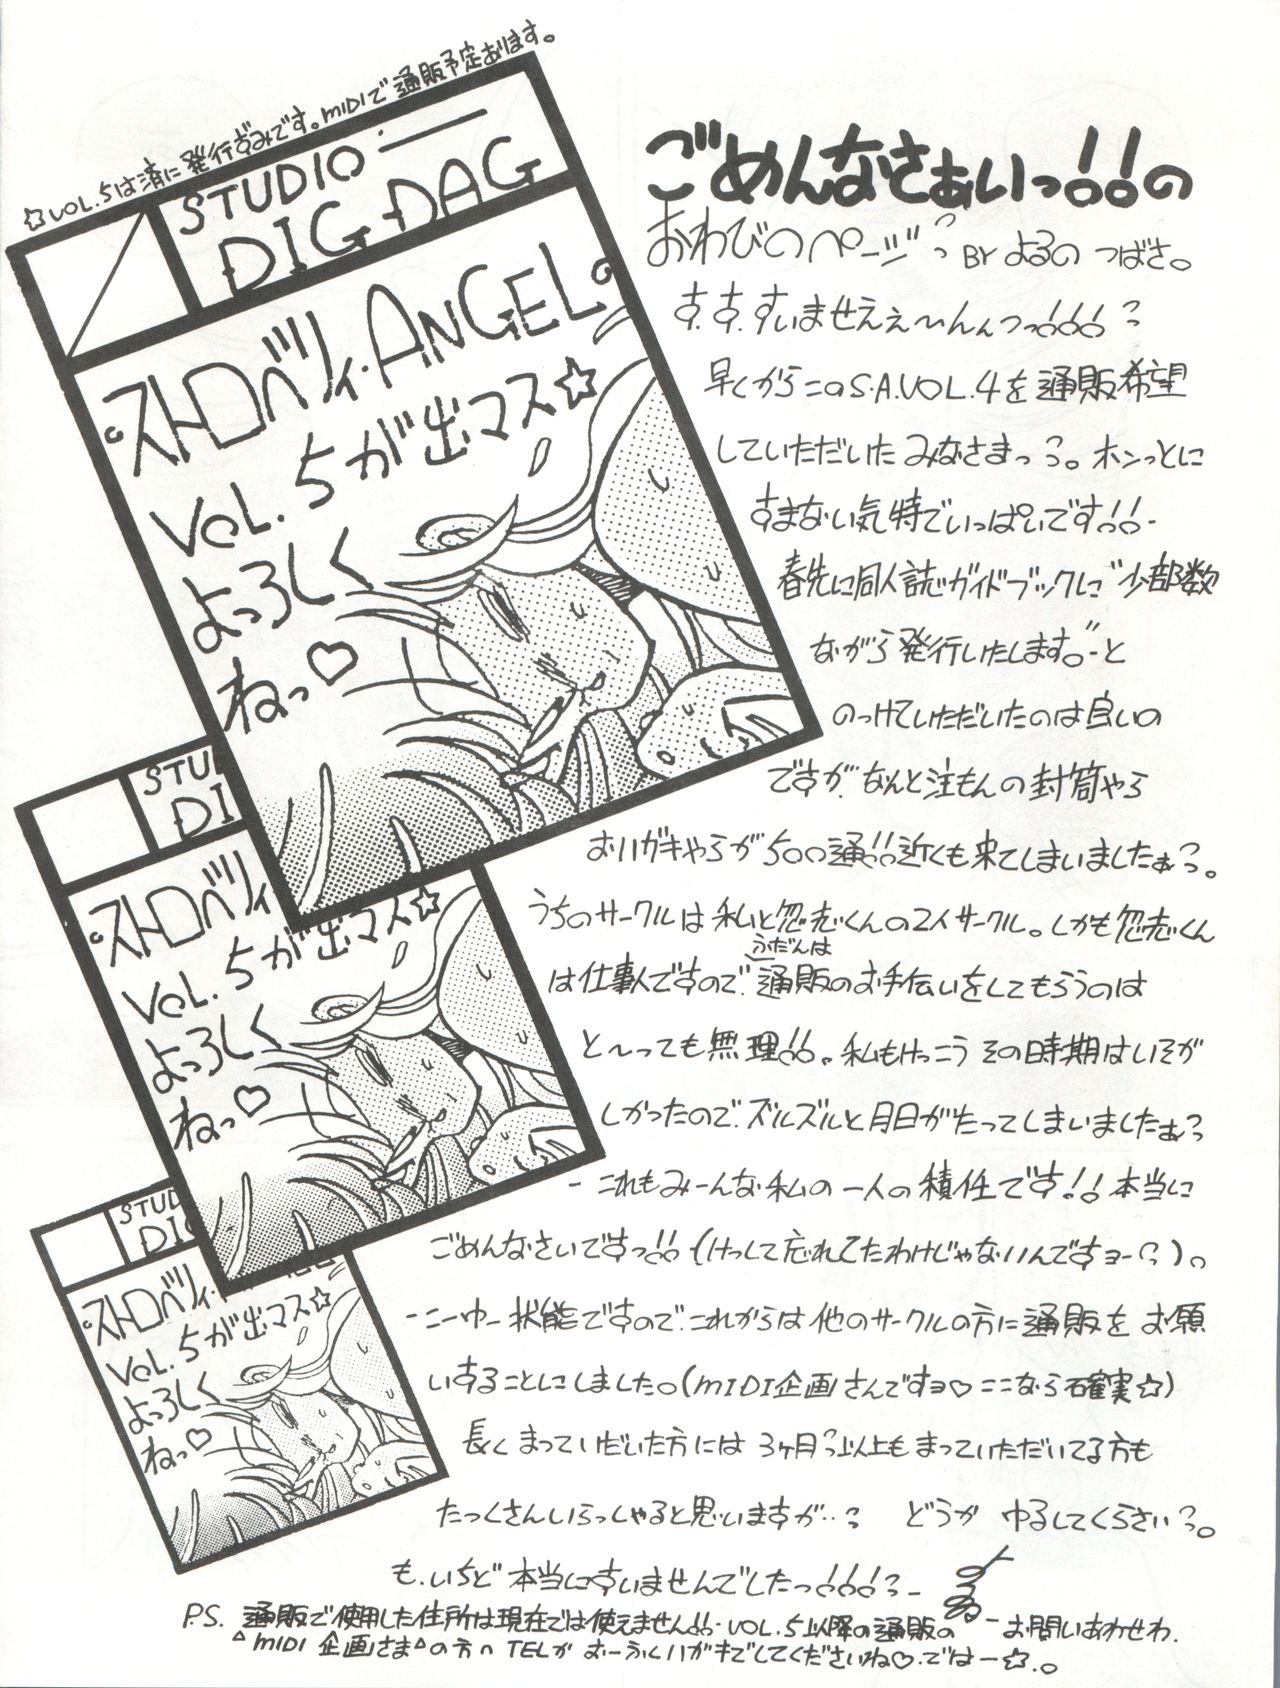 ☆VOL.5は済に発行ずみです。MIDIで通販予定あります。
STUDIO
DIG DAG
ストロベリィ・ANGEL。
VOL.5が出マス☆
よっろしく
ねっ♡
ごめんなさぁいっ!!の
おわびのページっ BY よるの つばさ。
す.す.すいませえぇ〜んんっっ!!!っ
早くからこのS.A.VOL.4を通販希望
していただいたみなさまっっ。ホンっとに
すまない気持でいっぱいです!!-
春先に同人誌ガイドブックに"少部数
ながら発行いたします。"と
のっけていただいたのは良いの
ですが、なんと注もんの封筒やら
おハガキやらが500通!!近くも来てしまいましたぁっ。
うちのサークルは私と忽志くんの2人サークル。しかも忽志くん
は仕事人ですので、通販のお手伝いをしてもらうのは
ふだんは
と〜っても無理!!。私もけっこうその時期はいそが
しかったので、ズルズルと月日がたってしまいましたぁっ
-これもみーんな私の一人の積任です!!本当に
ごめんなさいですっ!!(けっして忘れてたわけじゃないんですョーっ)。
-こーゆー状態ですので、これからは他のサークルの方に通販をお願
いすることにしました。(MIDI企画さんですョ♡ここなら確実☆)
長くまっていだいた方には3ヶ月っ以上もまっていただいてる方も
たっくさんいらっしゃると思いますが‥っ どうか ゆるしてくらさいっ。
も.いちど本当にすいませんでしたっ!!!っ-
P.S. 通販で使用した住所は現在では使えません!!・VOL.5以降の通販の
-お問いあわせわ.
△MIDI 企画さま△の方へTELか おーふくハガキでしてくださいね♡.ではー☆.。
STU
DI
ストロベリィ
VOL.5が出マス☆
よっろしく
ねっ♡
STUD
DIG
ストロベリィ・
VOL.5が出マス☆
よっろしく
ねっ♡